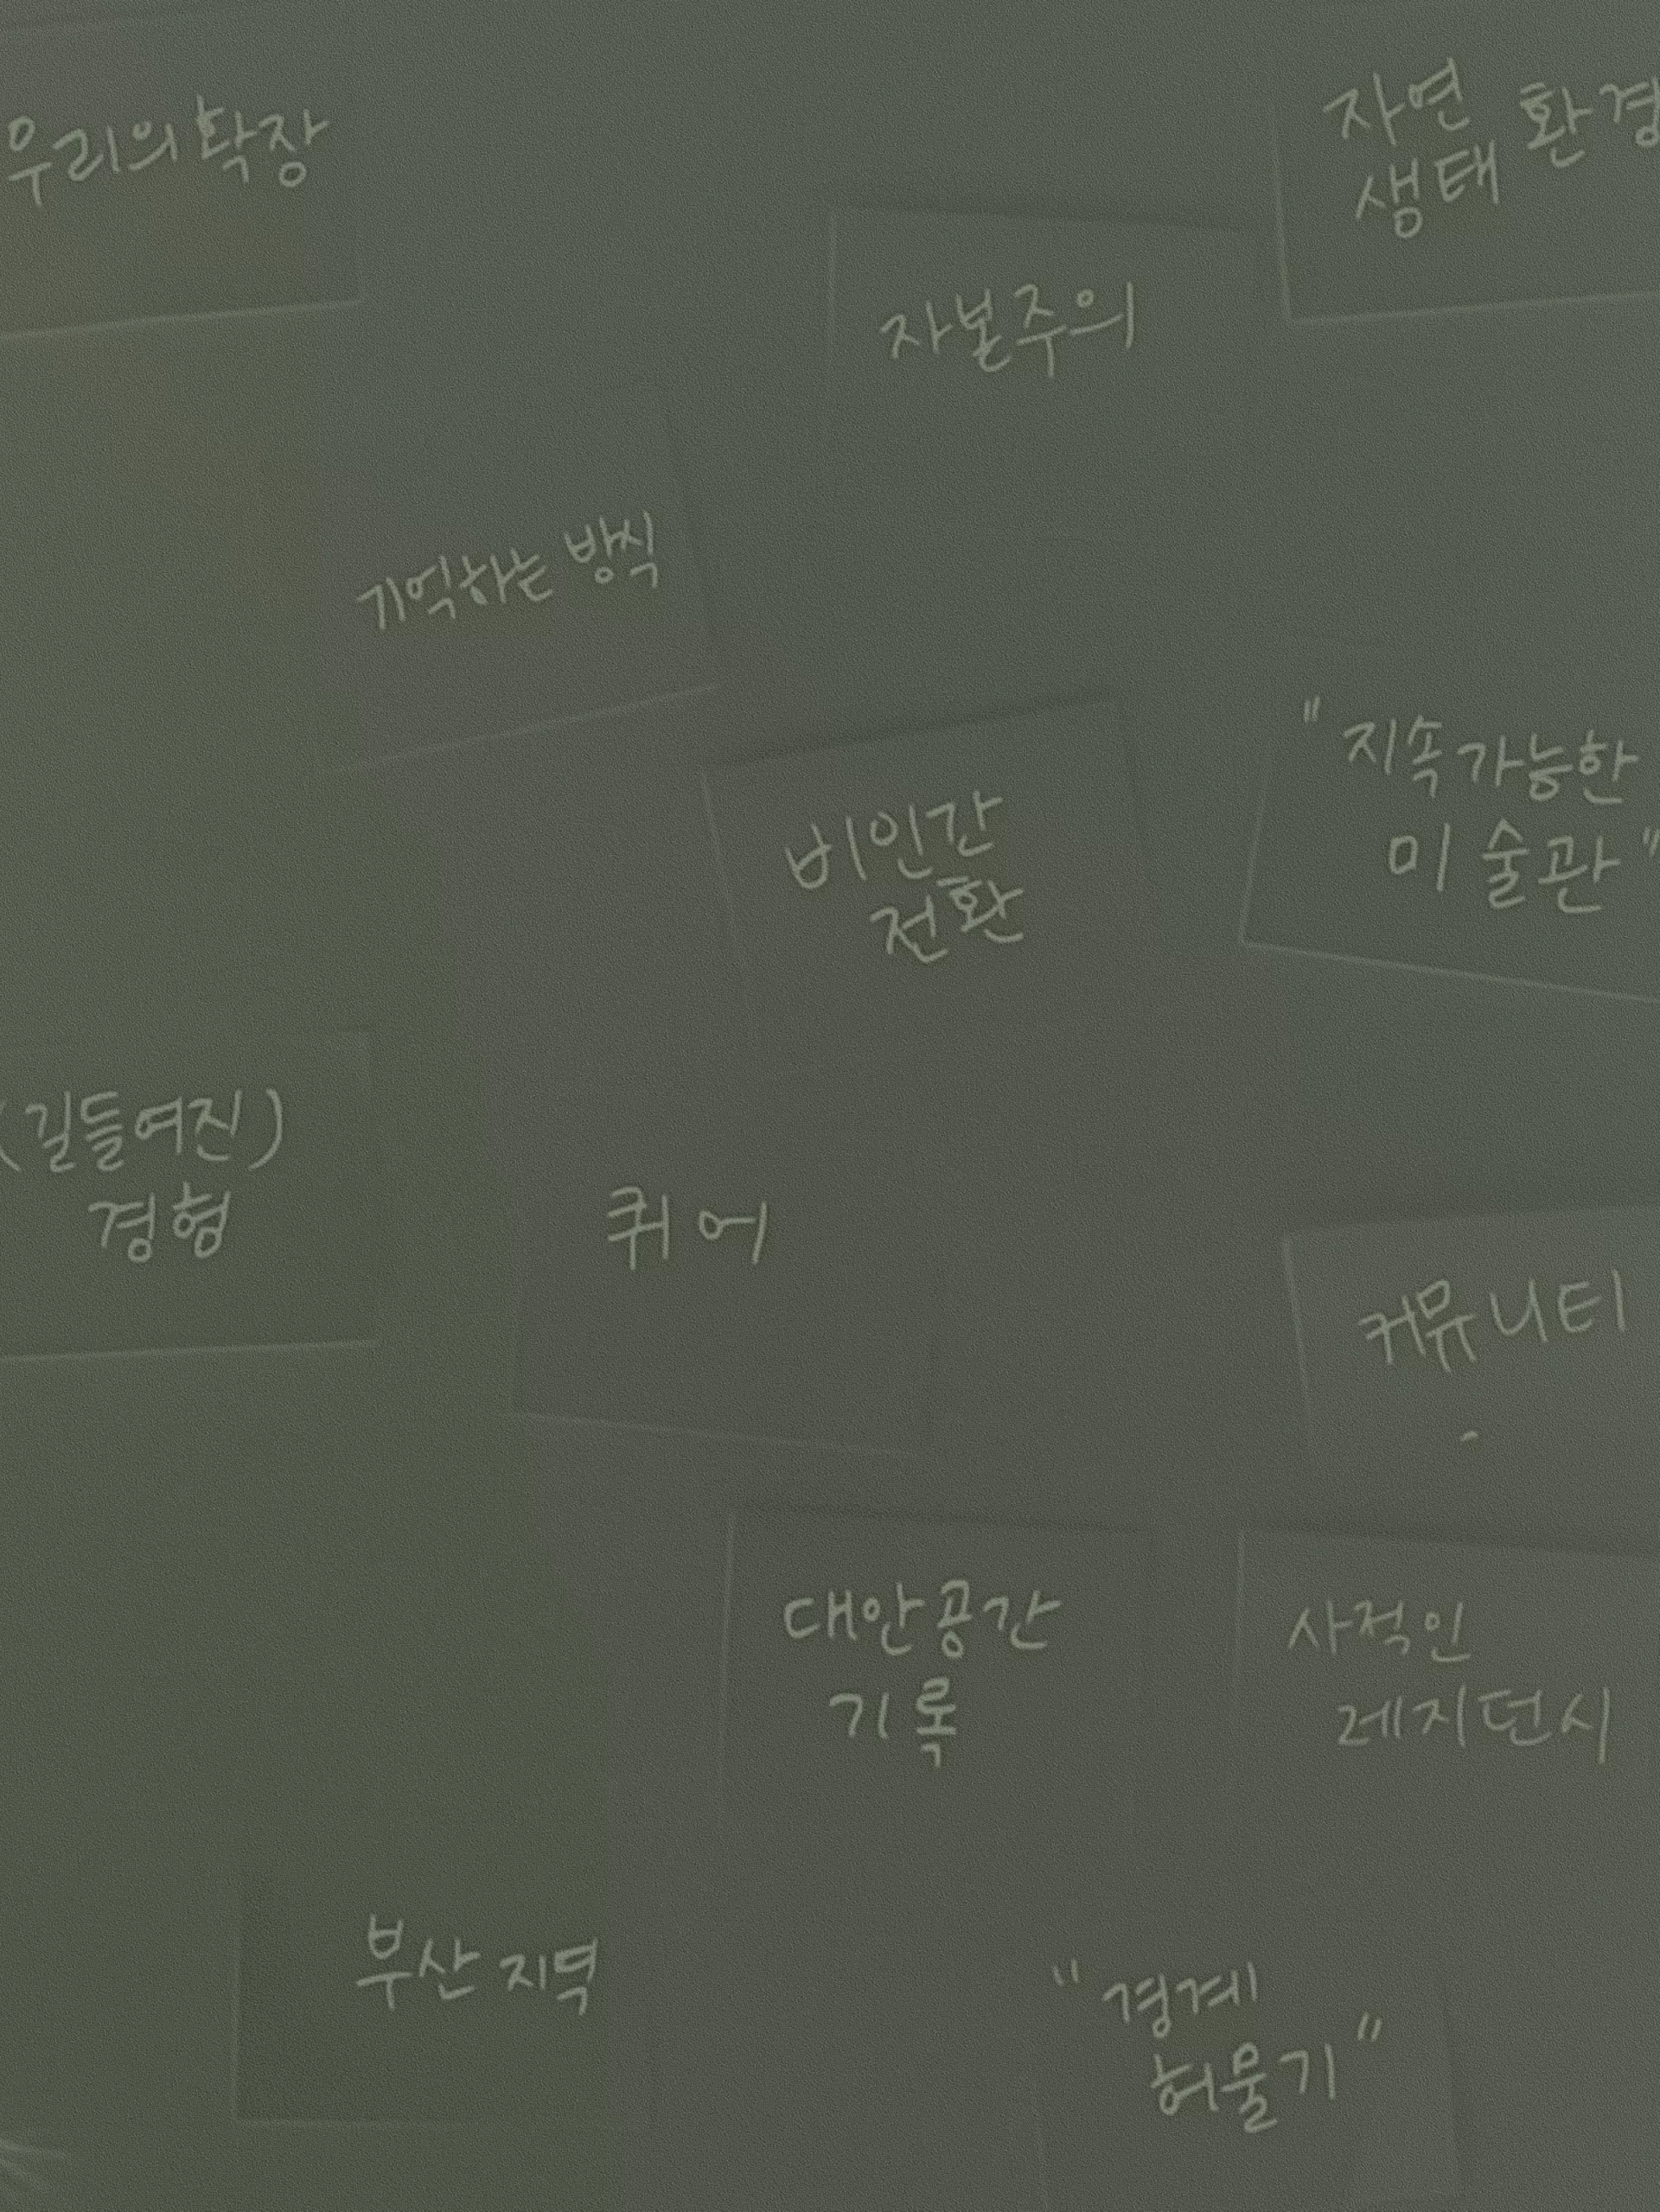 우리의 확장
자연
생태 환경
자본주의
기억하는 방식
"지속가능한
미술관"
비인간
전환
(길들여진)
경형
퀴어
커뮤니티
대안공간
기록
사적인
레지던시
부산 지역
"경계
허물기"